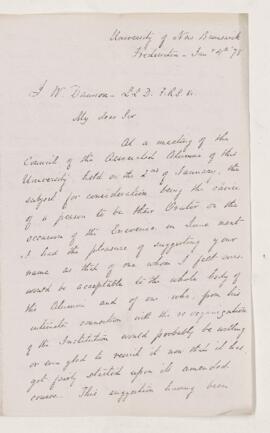 University of New Brunswick
Fredericton - Jany 4th '78
J. W. Dawson - L.L.D. F.R.S. &c
My dear Sir
At a meeting of the
Council of the Associated Alumni of this
University held on the 2nd of January, the
subject for consideration being the choice
of a person to be their Orator on the
occasion of the Encaenia in June next
I had the pleasure of suggesting your
name as that of one whom I felt sure
would be acceptable to the whole body of
the Alumni and of one who, from his
intimate connection with the re-organization
of the Institution would probably be willing
or even glad to revisit it now that it has
got fairly started upon its amended
course. This suggestion having been